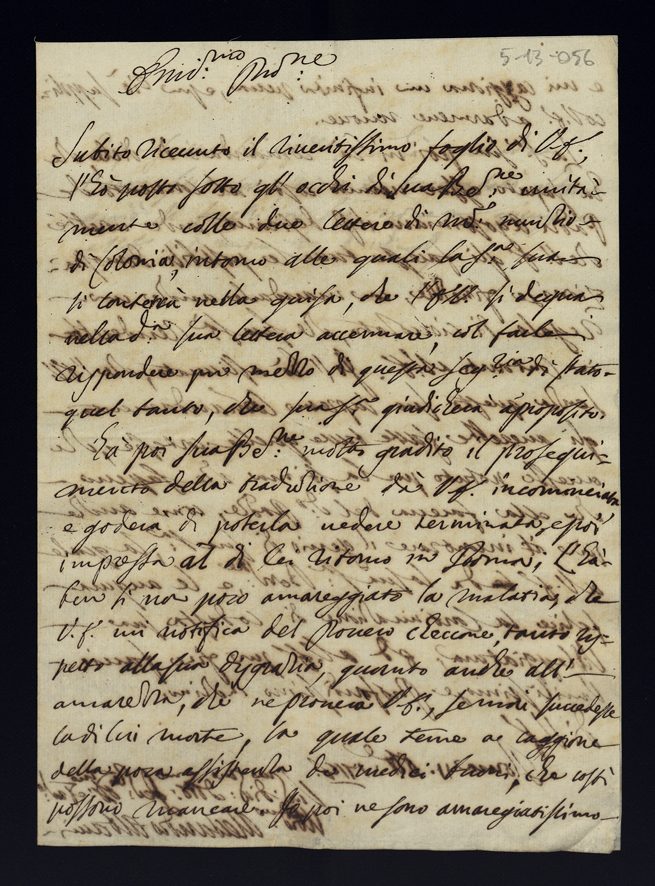 5-13-056
Emid.mo Pro.ne
Subito ricevuto il riveritissimo foglio di V.S.,
l'hò posto sotto gl'occhi di sua Be.ne unita-
mente colle due lettere di Md. nunzio
di Colonia, intorno alle quali la S.tà sua
si conterrà nella guisa, che si degna
nella d.a sua lettera accennare, col farle
rispondere per mezzo di questa Seg.ria di stato
quel tanto, che sua S.tà giudicherà àproposito.
Hà poi sua Be.ne molto gradito il prosegui-
mento della traduzione da V.S. incominciata
e goderà di poterla vedere terminata, e poi
impressa al di lei ritorno in Roma, L'hà
ben sì non poco amareggiato la malatia, che
V.S. mi notifica del povero Cleccone, tanto ris-
petto alla sua disgrazia, quanto anche all'
amarezza, che ne proverà V.S., se mai succedesse
la di lui morte, la quale teme a caggione
della poca assistenza de medici buoni, che costì
possono mancare. Io poi ne sono amaregiatissimo